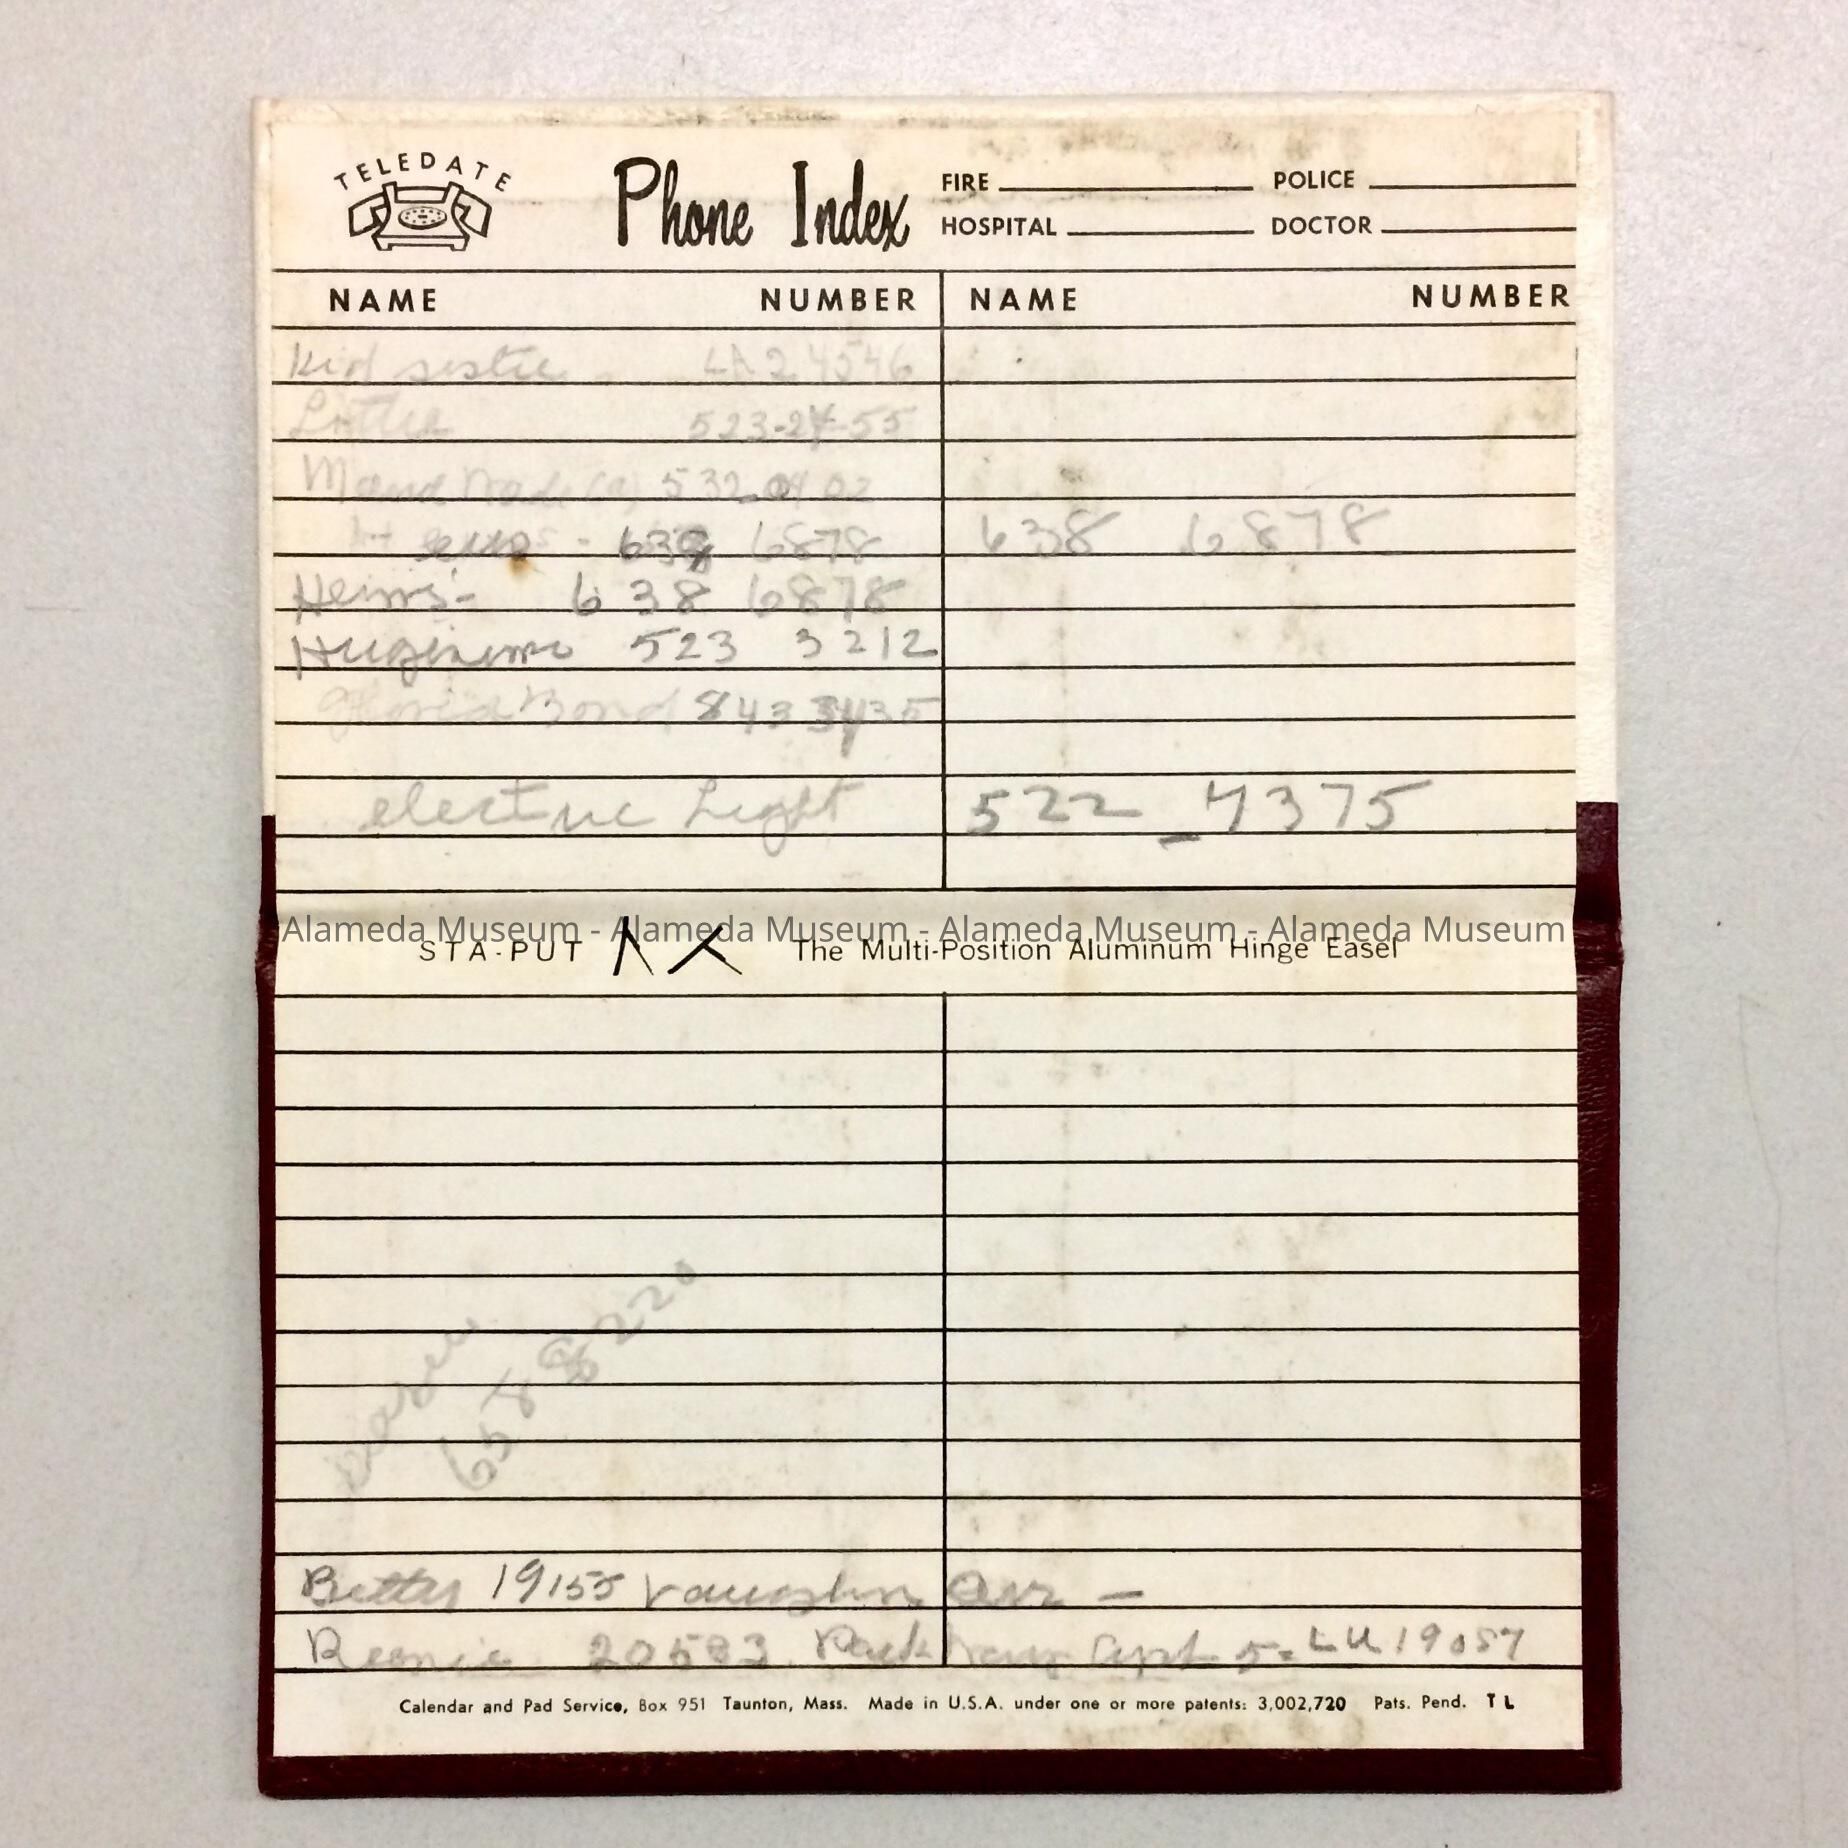 TELEDATE
Phone Index
FIRE POLICE
HOSPITAL DOCTOR
NAME NUMBER NAME NUMBER
Kid sister LA 2 4546
523-24-55
532-0402
638 6878 638 6878
Heins'- 638 6878
523 3212
Gloria Bond 843
electric Light 522-4375
Alameda Museum - Alameda Museum - Alameda Museum - Alameda Museum
STA-PUT The Multi-Position Aluminum Hinge Easel
Karen
658 8220
Betty 19155 Vaughn Ave -
Bernie 20583 Park Way Apt 5- LU 19057
Calendar and Pad Service, Box 951 Taunton, Mass. Made in U.S.A. under one or more patents: 3,002,720 Pats. Pend. T L